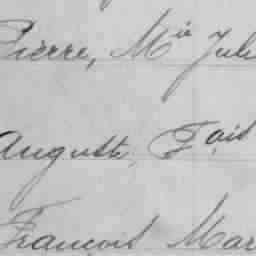 Pierre, Mie Jul
Auguste, Fois
François Mar